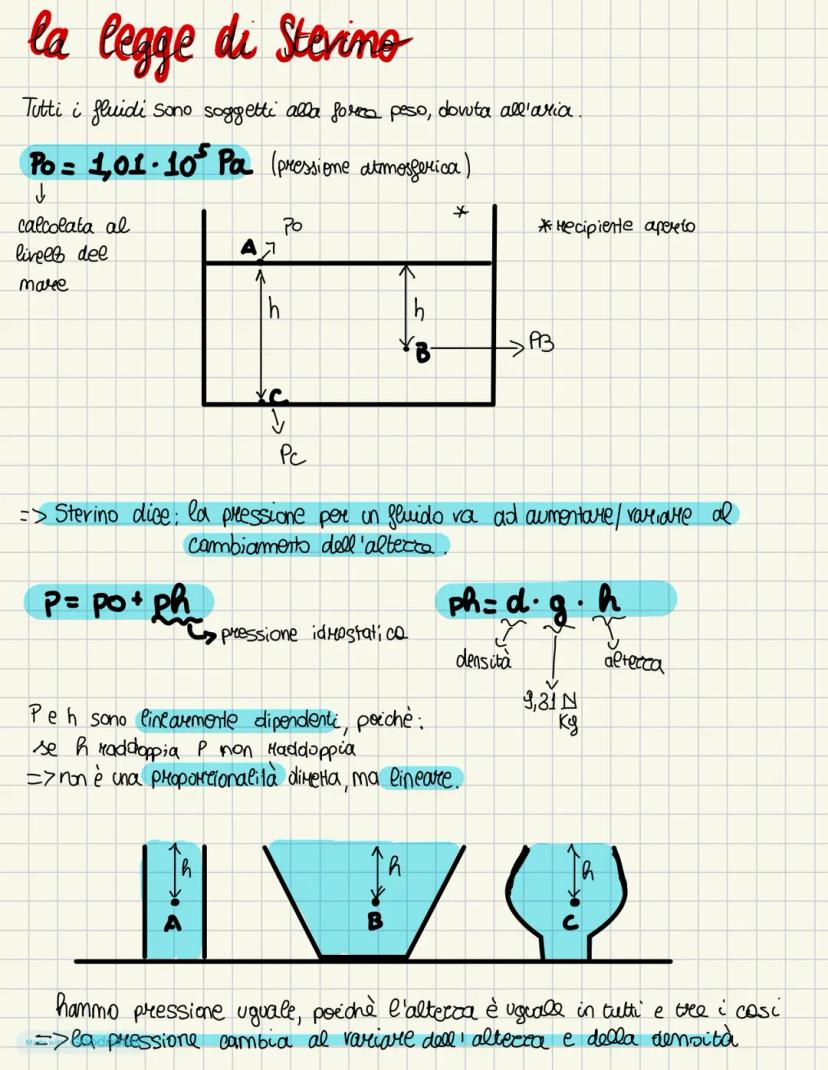 la legge di Stevino
Tutti i fluidi sono soggetti alla forza peso, dovuta all'aria.
Po = 1,01 · 10⁵ Pa (pressione atmosferica)
↓
calcolata al
livello del
mare
Po
*
* recipiente aperto
A
h
h
B
PB
C
Pc
=> Stevino dice: la pressione per un fluido va ad aumentare/variare al
cambiamento dell'altezza.
P = po + ph
pressione idrostatica
ph = d · g · h
densità
altezza
9,81 N
Kg
P e h sono linearmente dipendenti, poichè:
se h raddoppia P non raddoppia
=> non è una proporzionalità diretta, ma lineare.
h
h
h
A
B
C
hanno pressione uguale, poichè l'altezza è uguale in tutti e tre i casi
=> la pressione cambia al variare dell'altezza e della densità